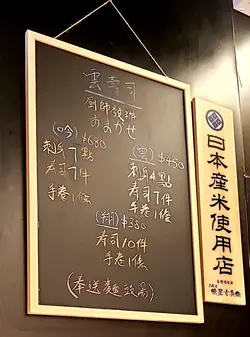 雲壽司
廚師發辦
おまかせ
(吟) $680
刺身7點
壽司7件
手卷1條
(雲) $450
刺身4點
壽司7件
手卷1條
(翔) $350
壽司10件
手卷1條
(奉送麵豉湯)
日本産米使用店